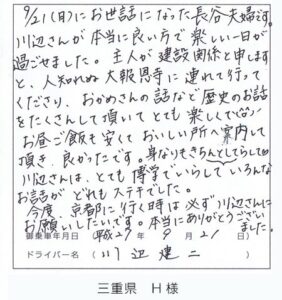 9/21(日)にお世話になった長谷夫婦です。
川辺さんが本当に良い方で楽しい一日が
過ごせました。主人が建設関係と申します
と、人知れぬ大報恩寺に連れて行って
くださり、おかめさんの話など歴史のお話
をたくさんして頂いてとても楽しくて(^^)
お昼ご飯も安くておいしい所へ案内して
頂き、良かったです。身なりもきちんとしてらして
川辺さんは、とても博学でいらしていろんな
お話がどれもステキでした。
今度、京都に行く時は必ず川辺さんに
お願いしたいです。本当にありがとうござい
ました。
御乗車年月日 (平成27年 9月 21日
ドライバー名 (川辺建二
三重県 H様